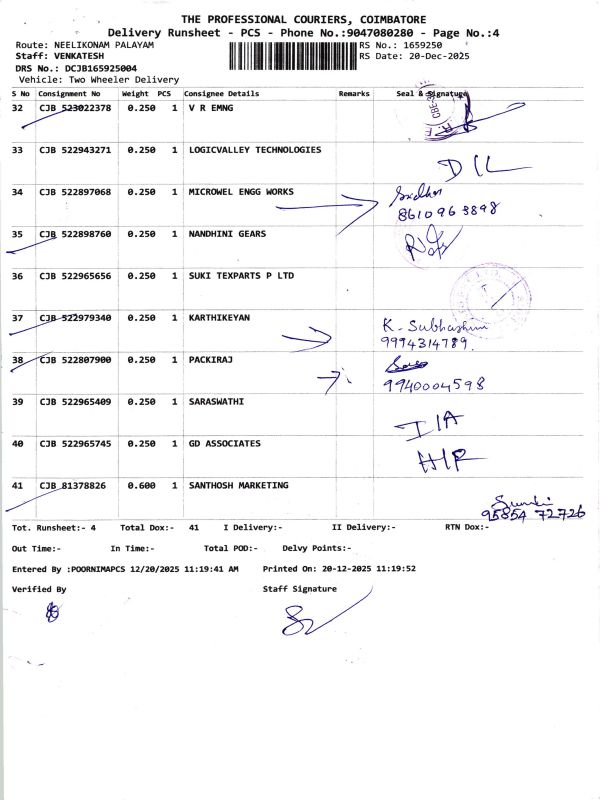 THE PROFESSIONAL COURIERS, COIMBATORE
Delivery Runsheet - PCS - Phone No.:9047080280 - Page No.:4
Route: NEELIKONAM PALAYAM RS No.: 1659250
Staff: VENKATESH RS Date: 20-Dec-2025
DRS No.: DCJB165925004
Vehicle: Two Wheeler Delivery
S No Consignment No Weight PCS Consignee Details Remarks Seal & Signature
32 CJB 523022378 0.250 1 V R EMNG
33 CJB 522943271 0.250 1 LOGICVALLEY TECHNOLOGIES
D/L
34 CJB 522897068 0.250 1 MICROWEL ENGG WORKS
8610963898
35 CJB 522898760 0.250 1 NANDHINI GEARS
36 CJB 522965656 0.250 1 SUKI TEXPARTS P LTD
37 CJB 522979340 0.250 1 KARTHIKEYAN
K. Subhashini
9994314789.
38 CJB 522807900 0.250 1 PACKIRAJ
9940004598
39 CJB 522965409 0.250 1 SARASWATHI
I/A
40 CJB 522965745 0.250 1 GD ASSOCIATES
41 CJB 81378826 0.600 1 SANTHOSH MARKETING
95854 72726
Tot. Runsheet:- 4 Total Dox:- 41 I Delivery:- II Delivery:- RTN Dox:-
Out Time:- In Time:- Total POD:- Delvy Points:-
Entered By :POORNIMAPCS 12/20/2025 11:19:41 AM Printed On: 20-12-2025 11:19:52
Verified By Staff Signature